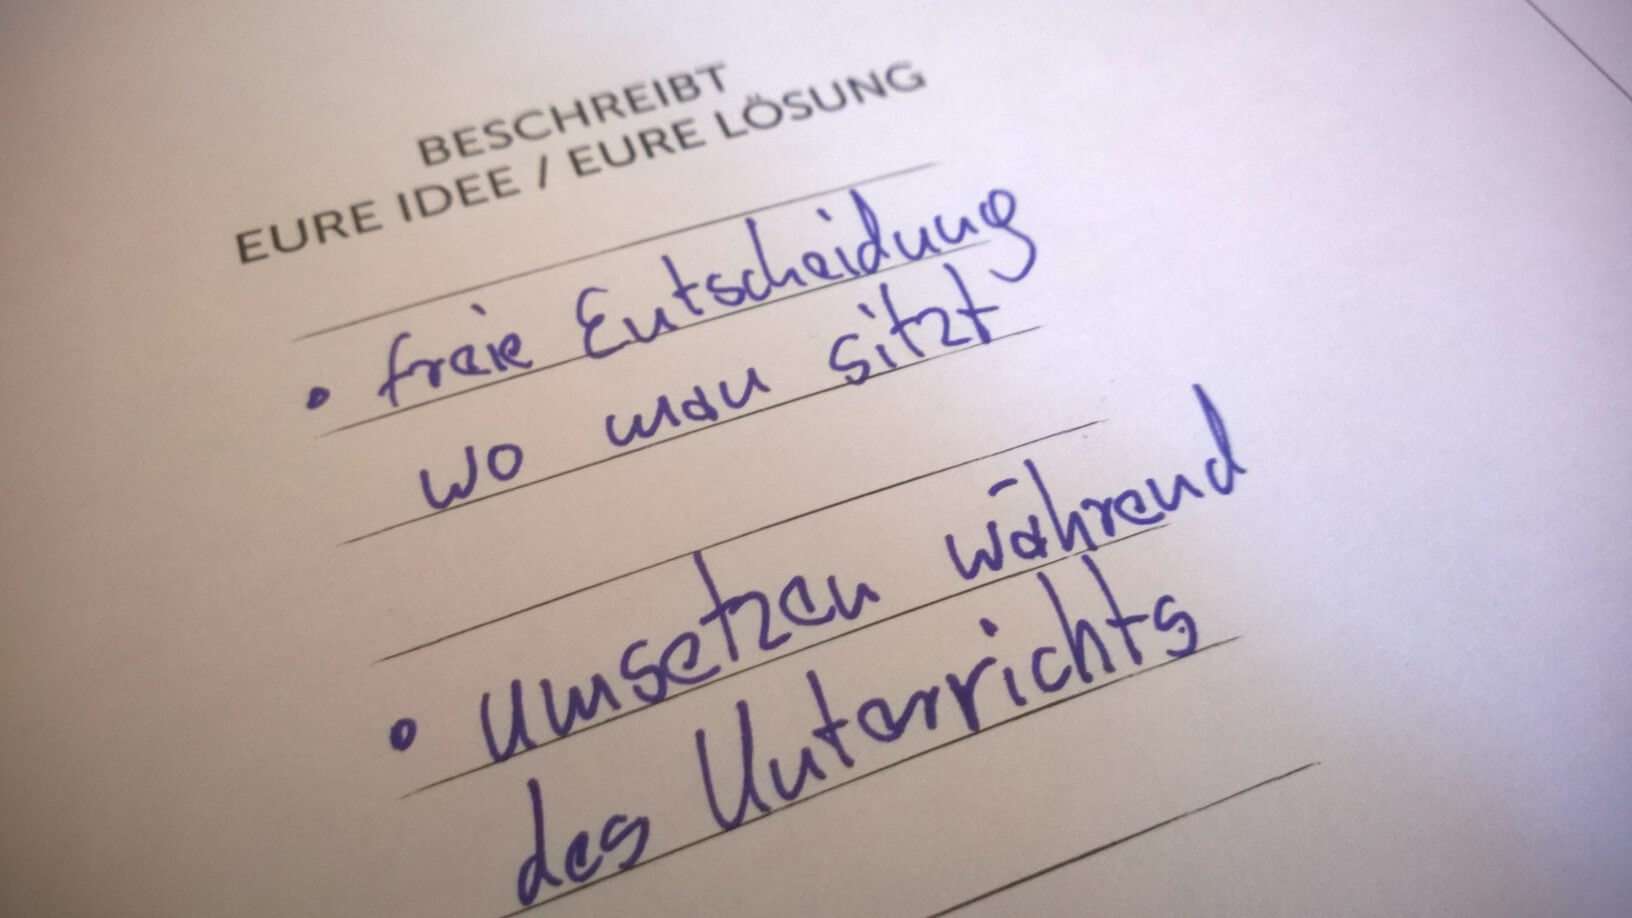 BESCHREIBT
EURE IDEE / EURE LÖSUNG
• freie Entscheidung
wo man sitzt
• umsetzen während
des Unterrichts